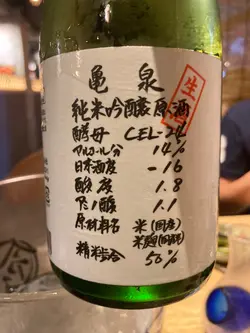 亀泉
生酒
純米吟醸原酒
酵母 CEL-24
アルコール分 14%
日本酒度 -16
酸度 1.8
アミノ酸 1.1
原材料名 米(国産)
米麹(国産米)
精米歩合 50%